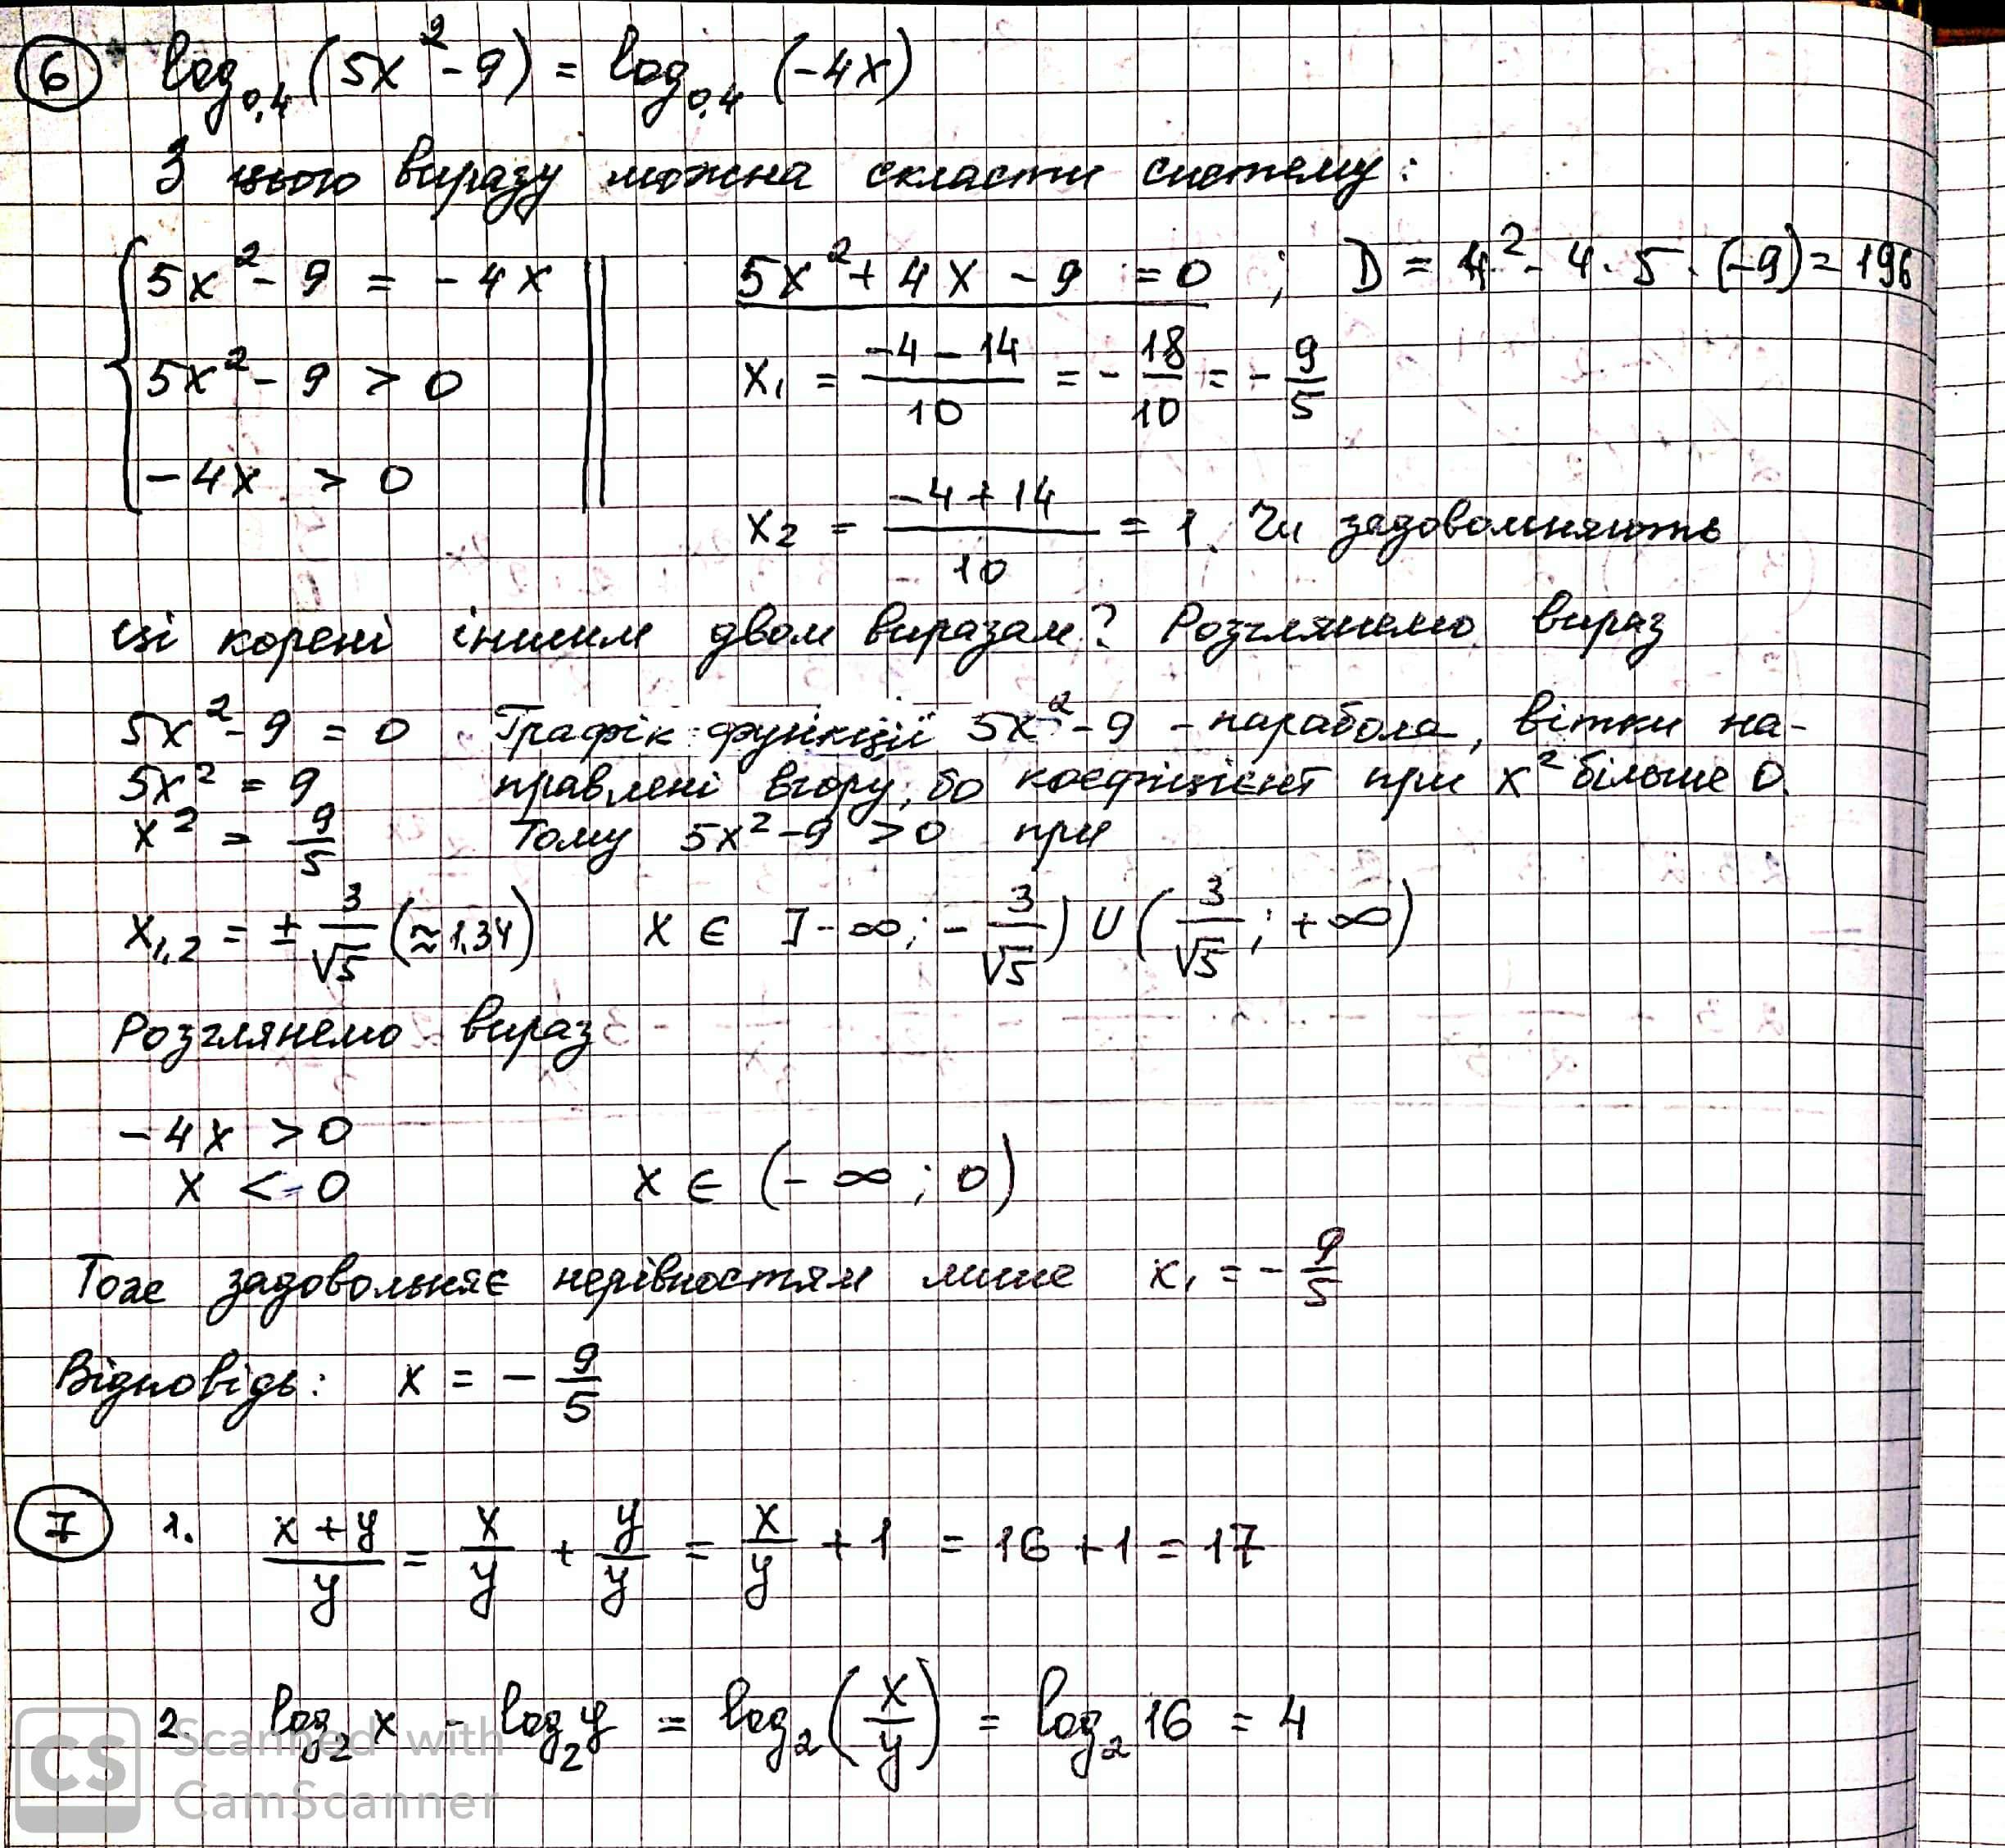 6 log₀,₄(5x² - 9) = log₀,₄(-4x)
З цього виразу можна скласти систему:
5x² - 9 = -4x
5x² - 9 > 0
-4x > 0
5x² + 4x - 9 = 0 ; D = 4² - 4·5·(-9) = 196
x₁ = (-4 - 14)/10 = -18/10 = -9/5
x₂ = (-4 + 14)/10 = 1. Чи задовольняють
ці корені іншим двом виразам? Розглянемо вираз
5x² - 9 = 0 Графік функції 5x² - 9 - парабола, вітки на-
5x² = 9 правлені вгору, бо коефіцієнт при x² більше 0.
x² = 9/5 Тому 5x² - 9 > 0 при
x₁,₂ = ± 3/√5 (≈1,34) x ∈ ]-∞; -3/√5) ∪ (3/√5; +∞)
Розглянемо вираз
-4x > 0
x < 0 x ∈ (-∞; 0)
Тоже задовольняє нерівностям лише x₁ = -9/5
Відповідь: x = -9/5
7 1. (x+y)/y = x/y + y/y = x/y + 1 = 16 + 1 = 17
2. log₂x - log₂y = log₂(x/y) = log₂16 = 4
CS Scanned with
CamScanner